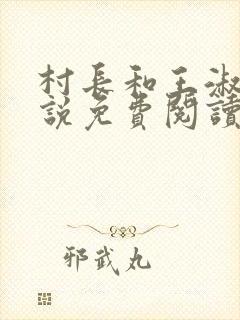 村長和王淑
說免費閱讀
邪武丸